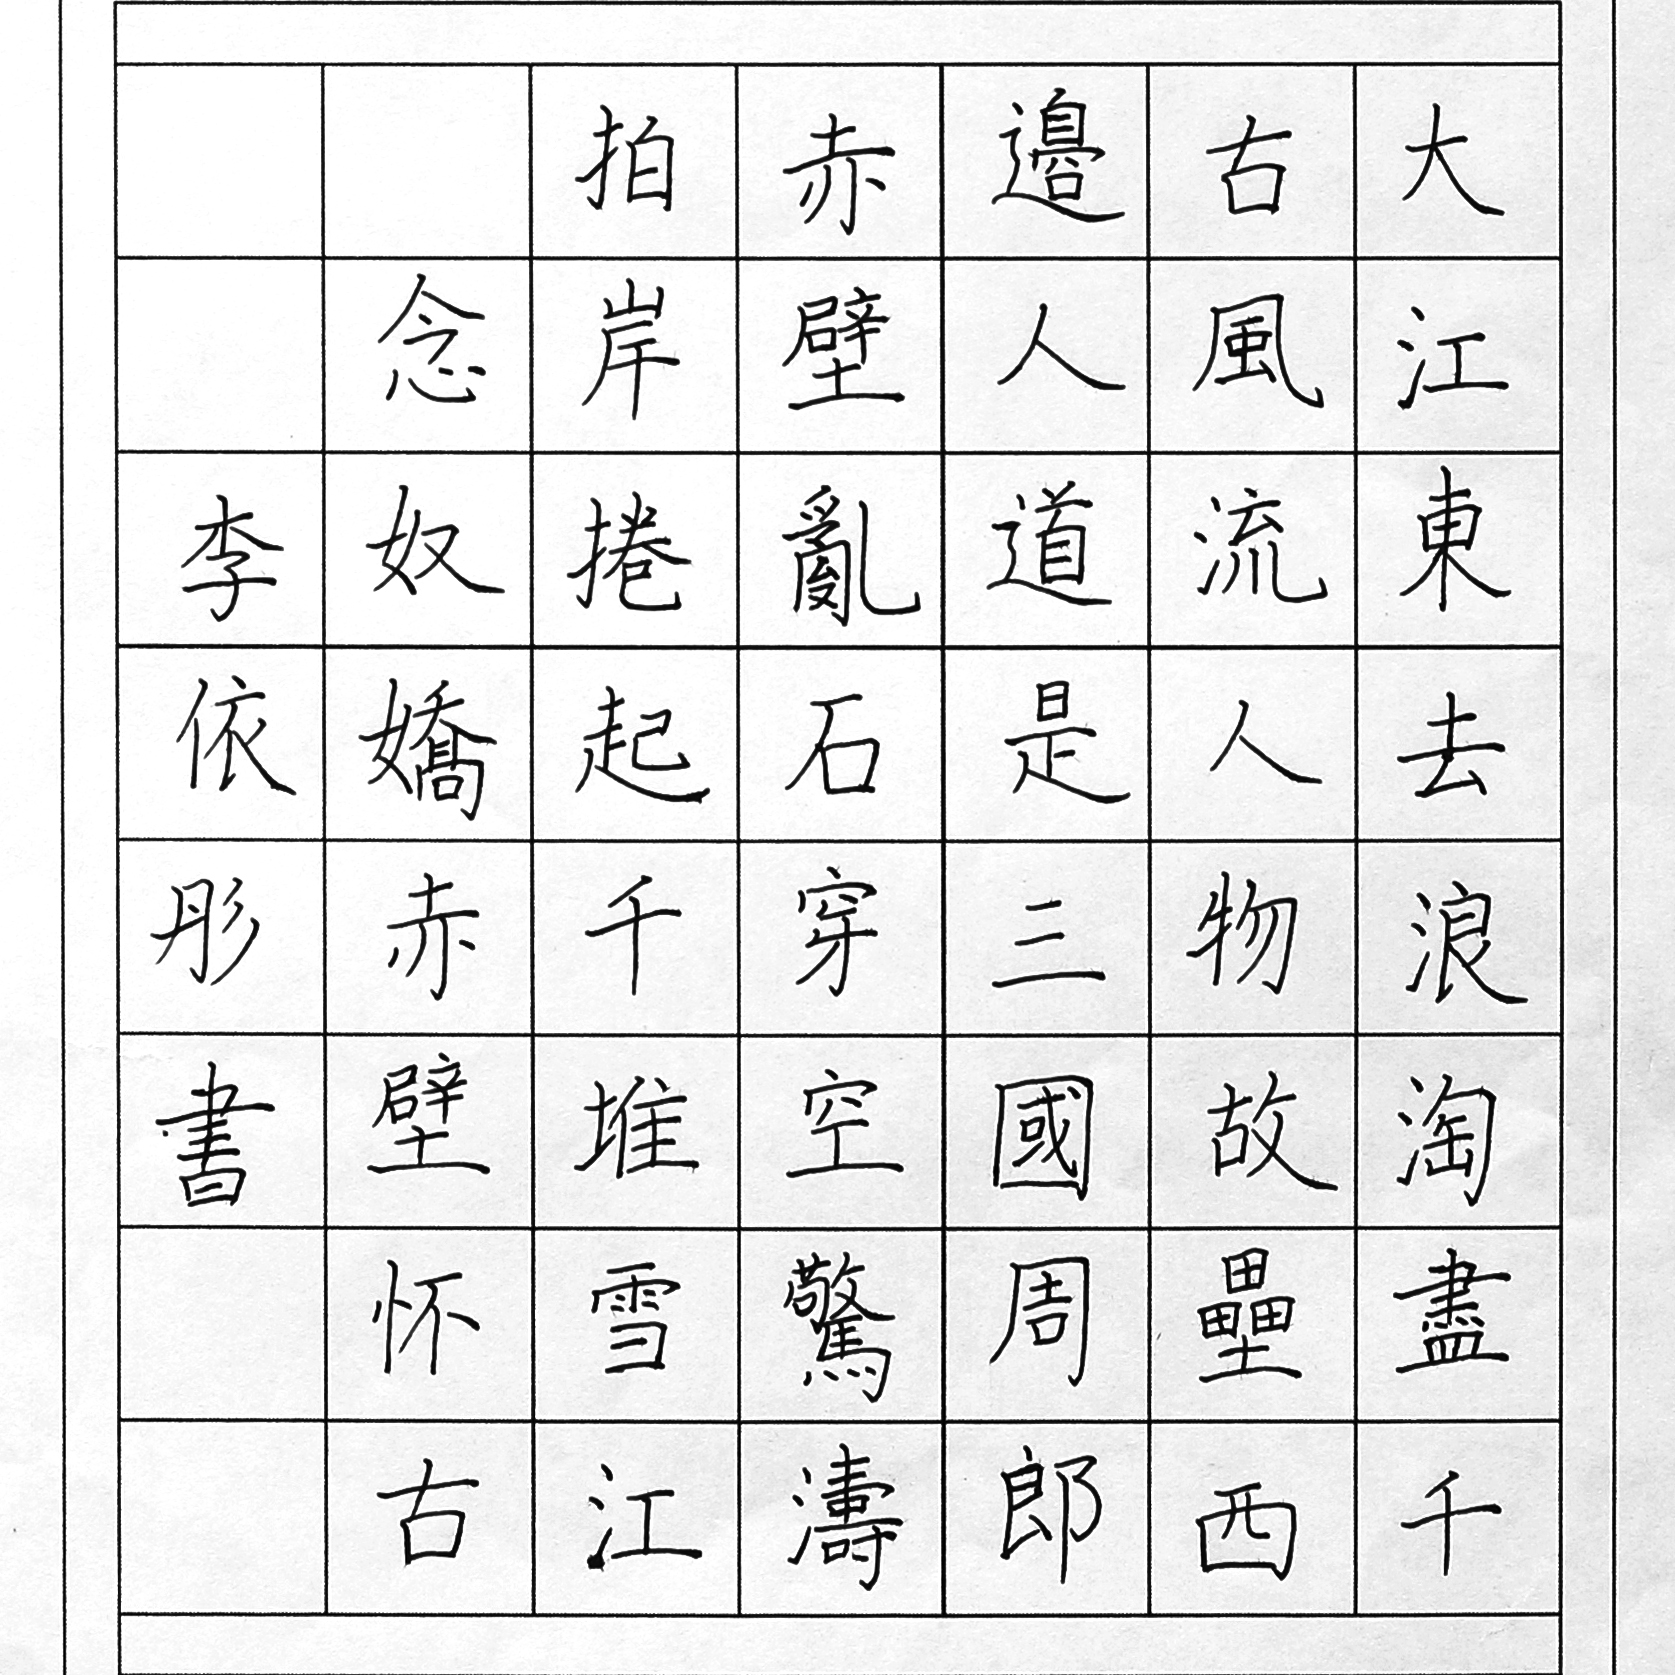 大江東去浪淘盡千
古風流人物故壘西
邊人道是三國周郎
赤壁亂石穿空驚濤
拍岸捲起千堆雪江
念奴嬌赤壁怀古
李依彤書